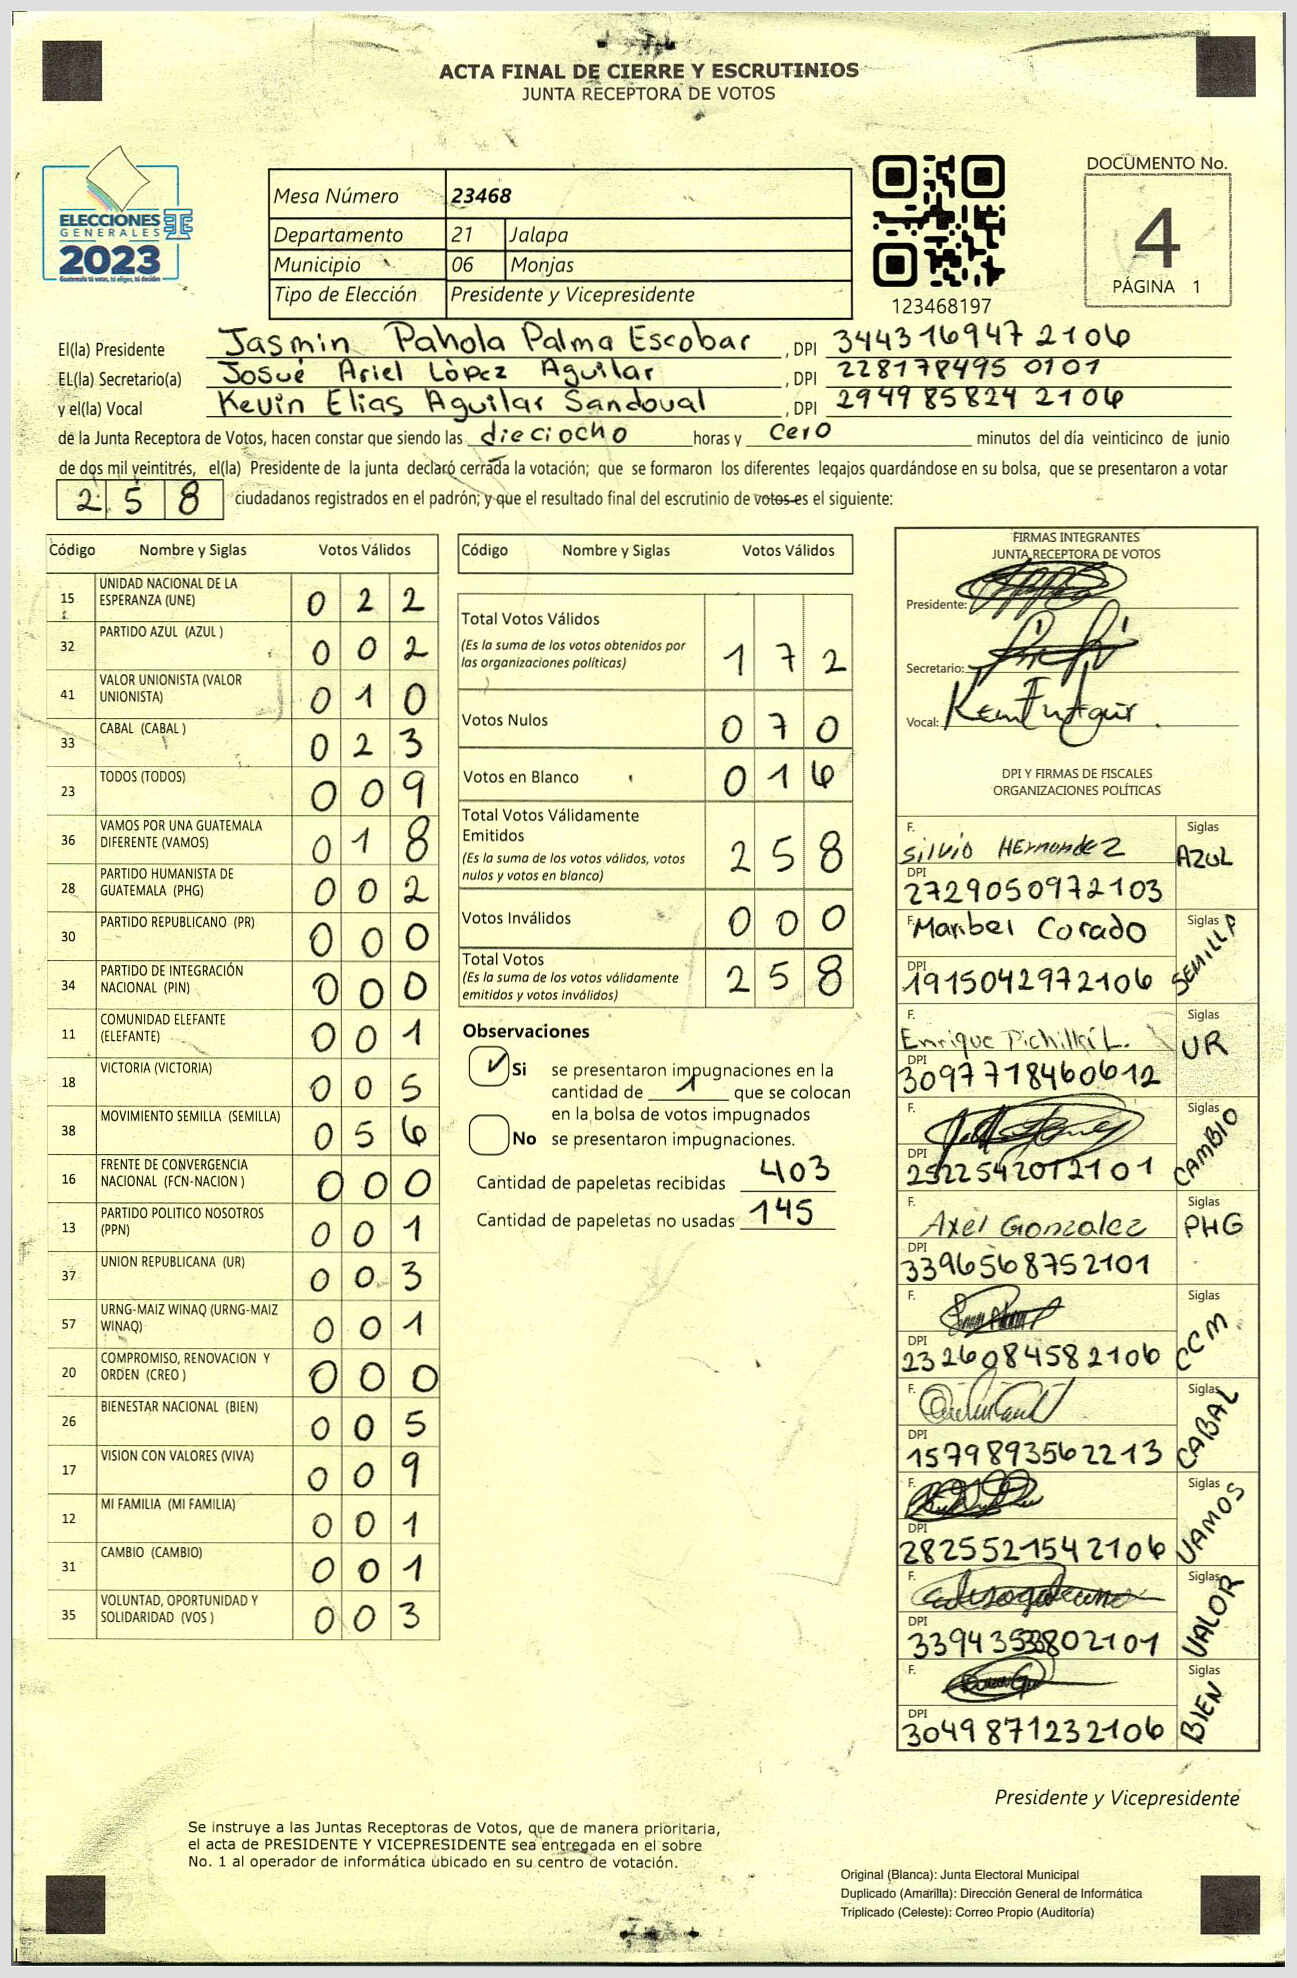 ACTA FINAL DE CIERRE Y ESCRUTINIOS
JUNTA RECEPTORA DE VOTOS
ELECCIONES
GENERALES
2023
Mesa Número 23468
Departamento 21 Jalapa
Municipio 06 Monjas
Tipo de Elección Presidente y Vicepresidente
123468197
DOCUMENTO No.
4
PÁGINA 1
El(la) Presidente Jasmin Pahola Palma Escobar, DPI 344316947 2106
EL(la) Secretario(a) Josué Ariel López Aguilar, DPI 228178495 0101
y el(la) Vocal Kevin Elias Aguilar Sandoval, DPI 294985824 2106
de la Junta Receptora de Votos, hacen constar que siendo las dieciocho horas y cero minutos del día veinticinco de junio
de dos mil veintitrés, el(la) Presidente de la junta declaró cerrada la votación; que se formaron los diferentes legajos guardándose en su bolsa, que se presentaron a votar
258 ciudadanos registrados en el padrón; y que el resultado final del escrutinio de votos es el siguiente:
Código Nombre y Siglas Votos Válidos
15 UNIDAD NACIONAL DE LA ESPERANZA (UNE) 022
32 PARTIDO AZUL (AZUL ) 002
41 VALOR UNIONISTA (VALOR UNIONISTA) 010
33 CABAL (CABAL ) 023
23 TODOS (TODOS) 009
36 VAMOS POR UNA GUATEMALA DIFERENTE (VAMOS) 018
28 PARTIDO HUMANISTA DE GUATEMALA (PHG) 002
30 PARTIDO REPUBLICANO (PR) 000
34 PARTIDO DE INTEGRACIÓN NACIONAL (PIN) 000
11 COMUNIDAD ELEFANTE (ELEFANTE) 001
18 VICTORIA (VICTORIA) 005
38 MOVIMIENTO SEMILLA (SEMILLA) 056
16 FRENTE DE CONVERGENCIA NACIONAL (FCN-NACION ) 000
13 PARTIDO POLITICO NOSOTROS (PPN) 001
37 UNION REPUBLICANA (UR) 003
57 URNG-MAIZ WINAQ (URNG-MAIZ WINAQ) 001
20 COMPROMISO, RENOVACION Y ORDEN (CREO ) 000
26 BIENESTAR NACIONAL (BIEN) 005
17 VISION CON VALORES (VIVA) 009
12 MI FAMILIA (MI FAMILIA) 001
31 CAMBIO (CAMBIO) 001
35 VOLUNTAD, OPORTUNIDAD Y SOLIDARIDAD (VOS ) 003
Código Nombre y Siglas Votos Válidos
Total Votos Válidos 172
(Es la suma de los votos obtenidos por
las organizaciones políticas)
Votos Nulos 070
Votos en Blanco 016
Total Votos Válidamente
Emitidos 258
(Es la suma de los votos válidos, votos
nulos y votos en blanco)
Votos Inválidos 000
Total Votos 258
(Es la suma de los votos válidamente
emitidos y votos inválidos)
Observaciones
Si se presentaron impugnaciones en la
cantidad de 1 que se colocan
en la bolsa de votos impugnados
No se presentaron impugnaciones.
Cantidad de papeletas recibidas 403
Cantidad de papeletas no usadas 145
FIRMAS INTEGRANTES
JUNTA RECEPTORA DE VOTOS
Presidente:
Secretario:
Vocal:
DPI Y FIRMAS DE FISCALES
ORGANIZACIONES POLÍTICAS
F. Silvio Hernandez Siglas AZUL
DPI 2729050972103
F. Maribel Corado Siglas SEMILLA
DPI 1915042972106
F. Enrique Siglas UR
DPI 3097718460612
F. Siglas CAMBIO
DPI 2522542012101
F. Axel Gonzalez Siglas PHG
DPI 3396568752101
F. Siglas CCM
DPI 2326084582106
F. Siglas CABAL
DPI 1579893562213
F. Siglas VAMOS
DPI 2825521542106
F. Siglas VALOR
DPI
F. Siglas BIEN
DPI 3049871232106
Presidente y Vicepresidente
Se instruye a las Juntas Receptoras de Votos, que de manera prioritaria,
el acta de PRESIDENTE Y VICEPRESIDENTE sea entregada en el sobre
No. 1 al operador de informática ubicado en su centro de votación.
Original (Blanca): Junta Electoral Municipal
Duplicado (Amarilla): Dirección General de Informática
Triplicado (Celeste): Correo Propio (Auditoría)